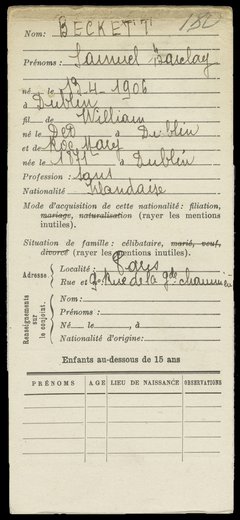 180
Nom: BECKETT
Prénoms: Samuel Barclay
né le 13-4-1906
à Dublin
fil de William
né le DCD à Dublin
et de Roe Mary
née le 1871 à Dublin
Profession: Sans
Nationalité Irlandaise
Mode d'acquisition de cette nationalité: filiation,
mariage, naturalisation (rayer les mentions
inutiles).
Situation de famille: célibataire, marié, veuf,
divorcé (rayer les mentions inutiles).
Adresse
Localité: Paris
Rue et n° Rue de la gde chaumière
Renseignements sur le conjoint.
Nom:
Prénoms:
Né le à
Nationalité d'origine:
Enfants au-dessous de 15 ans
PRÉNOMS AGE LIEU DE NAISSANCE OBSERVATIONS